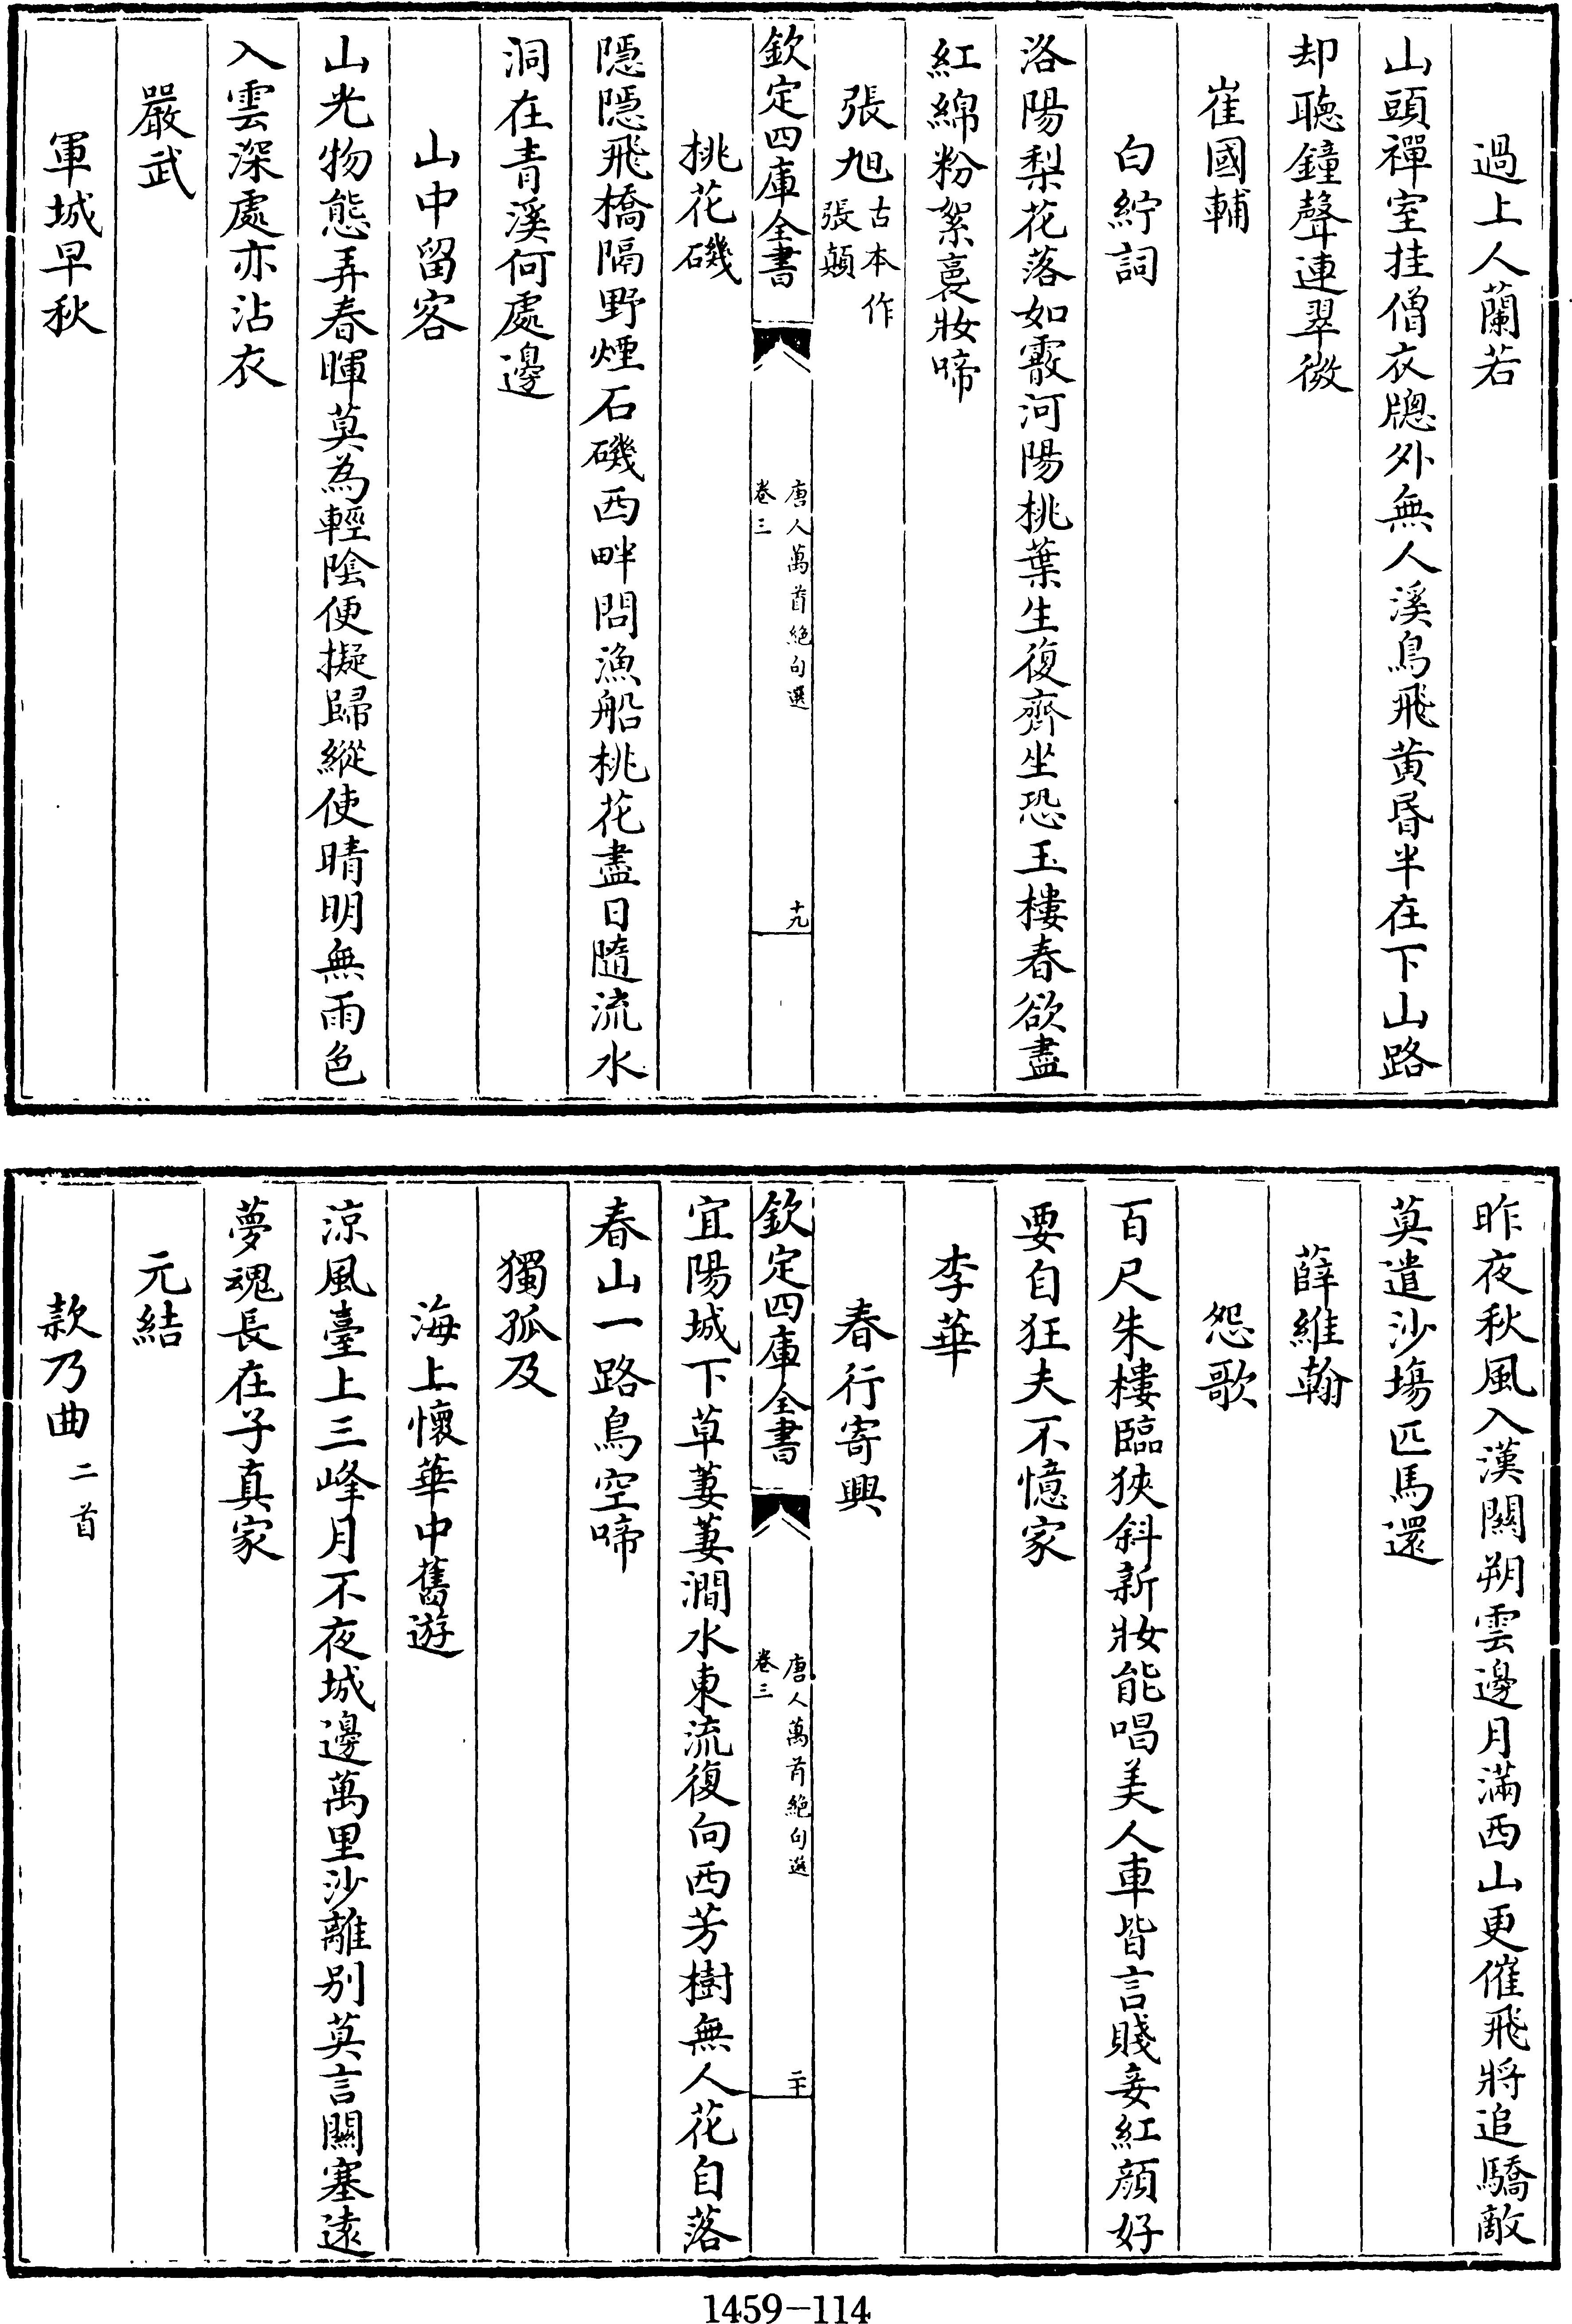 過上人蘭若
山頭禪室挂僧衣牕外無人溪鳥飛黄昏半在下山路
却聽鐘聲連翠微
崔國輔
白紵詞
洛陽梨花落如霰河陽桃葉生復齊坐恐玉樓春欲盡
紅綿粉絮裛妝啼
張旭古本作張顛
欽定四庫全書
唐人萬首絶句選
卷三
十九
桃花磯
隱隱飛橋隔野煙石磯西畔問漁船桃花盡日隨流水
洞在青溪何處邊
山中留客
山光物態弄春暉莫為輕陰便擬歸縱使晴明無雨色
入雲深處亦沾衣
嚴武
軍城早秋
昨夜秋風入漢關朔雲邊月滿西山更催飛將追驕敵
莫遣沙塲匹馬還
薛維翰
怨歌
百尺朱樓臨狹斜新妝能唱美人車皆言賤妾紅顔好
要自狂夫不憶家
李華
春行寄興
欽定四庫全書
唐人萬首絶句選
卷三
二十
宜陽城下草萋萋澗水東流復向西芳樹無人花自落
春山一路鳥空啼
獨孤及
海上懷華中舊遊
涼風臺上三峰月不夜城邊萬里沙離别莫言關塞遠
夢魂長在子真家
元結
款乃曲二首
1459-114